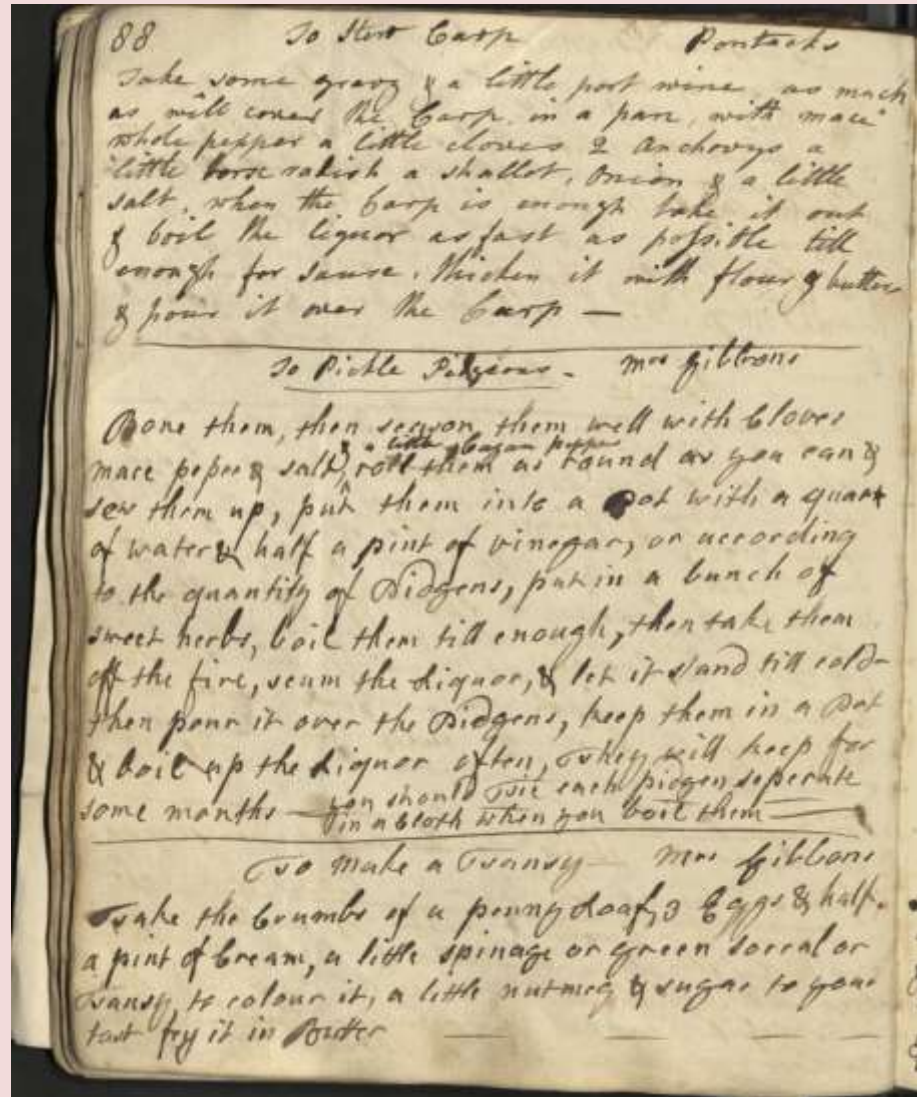 88 To Stew Carp Pontacks
Take some gravy & a little port wine, as much
as will cover the Carp, in a pan, with mace
whole pepper a little cloves 2 Anchovys a
little horse radish a shallot, Onion & a little
salt, when the Carp is enough take it out
& boil the liquor as fast as possible till
enough for sause. thicken it with flour & butter
& pour it over the Carp —
To Pickle Pidgeons - Mrs Gibbons
Bone them, then season them well with Cloves
& a little Cayan pepper
mace peper & salt, roll them as round as you can &
sew them up, put them into a Pot with a quart
of water & half a pint of vinegar, or according
to the quantity of Pidgens, put in a bunch of
sweet herbs, boil them till enough, then take them
off the fire, scum the Liquor, & let it stand till cold-
then pour it over the Pidgens, keep them in a Pot
& boil up the Liquor often, They will keep for
some months — you should Tie each pidgen seperate
in a Cloth when you boil them —
To make a Tansy — Mrs Gibbons
Take the Crumbs of a penny Loaf, 3 Eggs & half-
a pint of Cream, a little spinage or green soreal or
Tansy, to colour it, a little nutmeg & sugar to your
tast fry it in Butter — — —